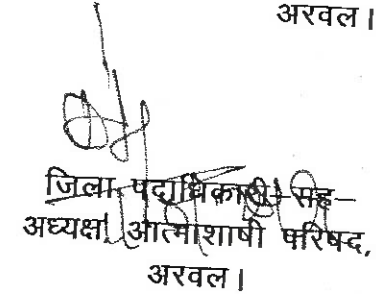 अरवल।
जिला पदाधिकारी-सह-
अध्यक्ष, आत्माशाषी परिषद,
अरवल।